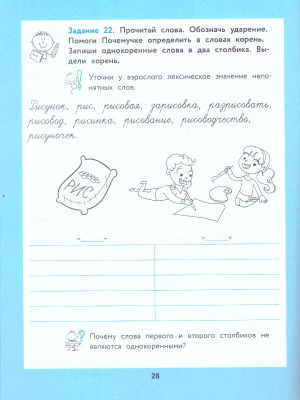 Задание 22. Прочитай слова. Обозначь ударение.
Помоги Почемучке определить в словах корень.
Запиши однокоренные слова в два столбика. Вы-
дели корень.
Уточни у взрослого лексическое значение непо-
нятных слов.
Рисунок, рис, рисовая, зарисовка, разрисовать,
рисовод, рисинка, рисование, рисоводчество,
рисуночек.
РИС
Почему слова первого и второго столбиков не
являются однокоренными?
28